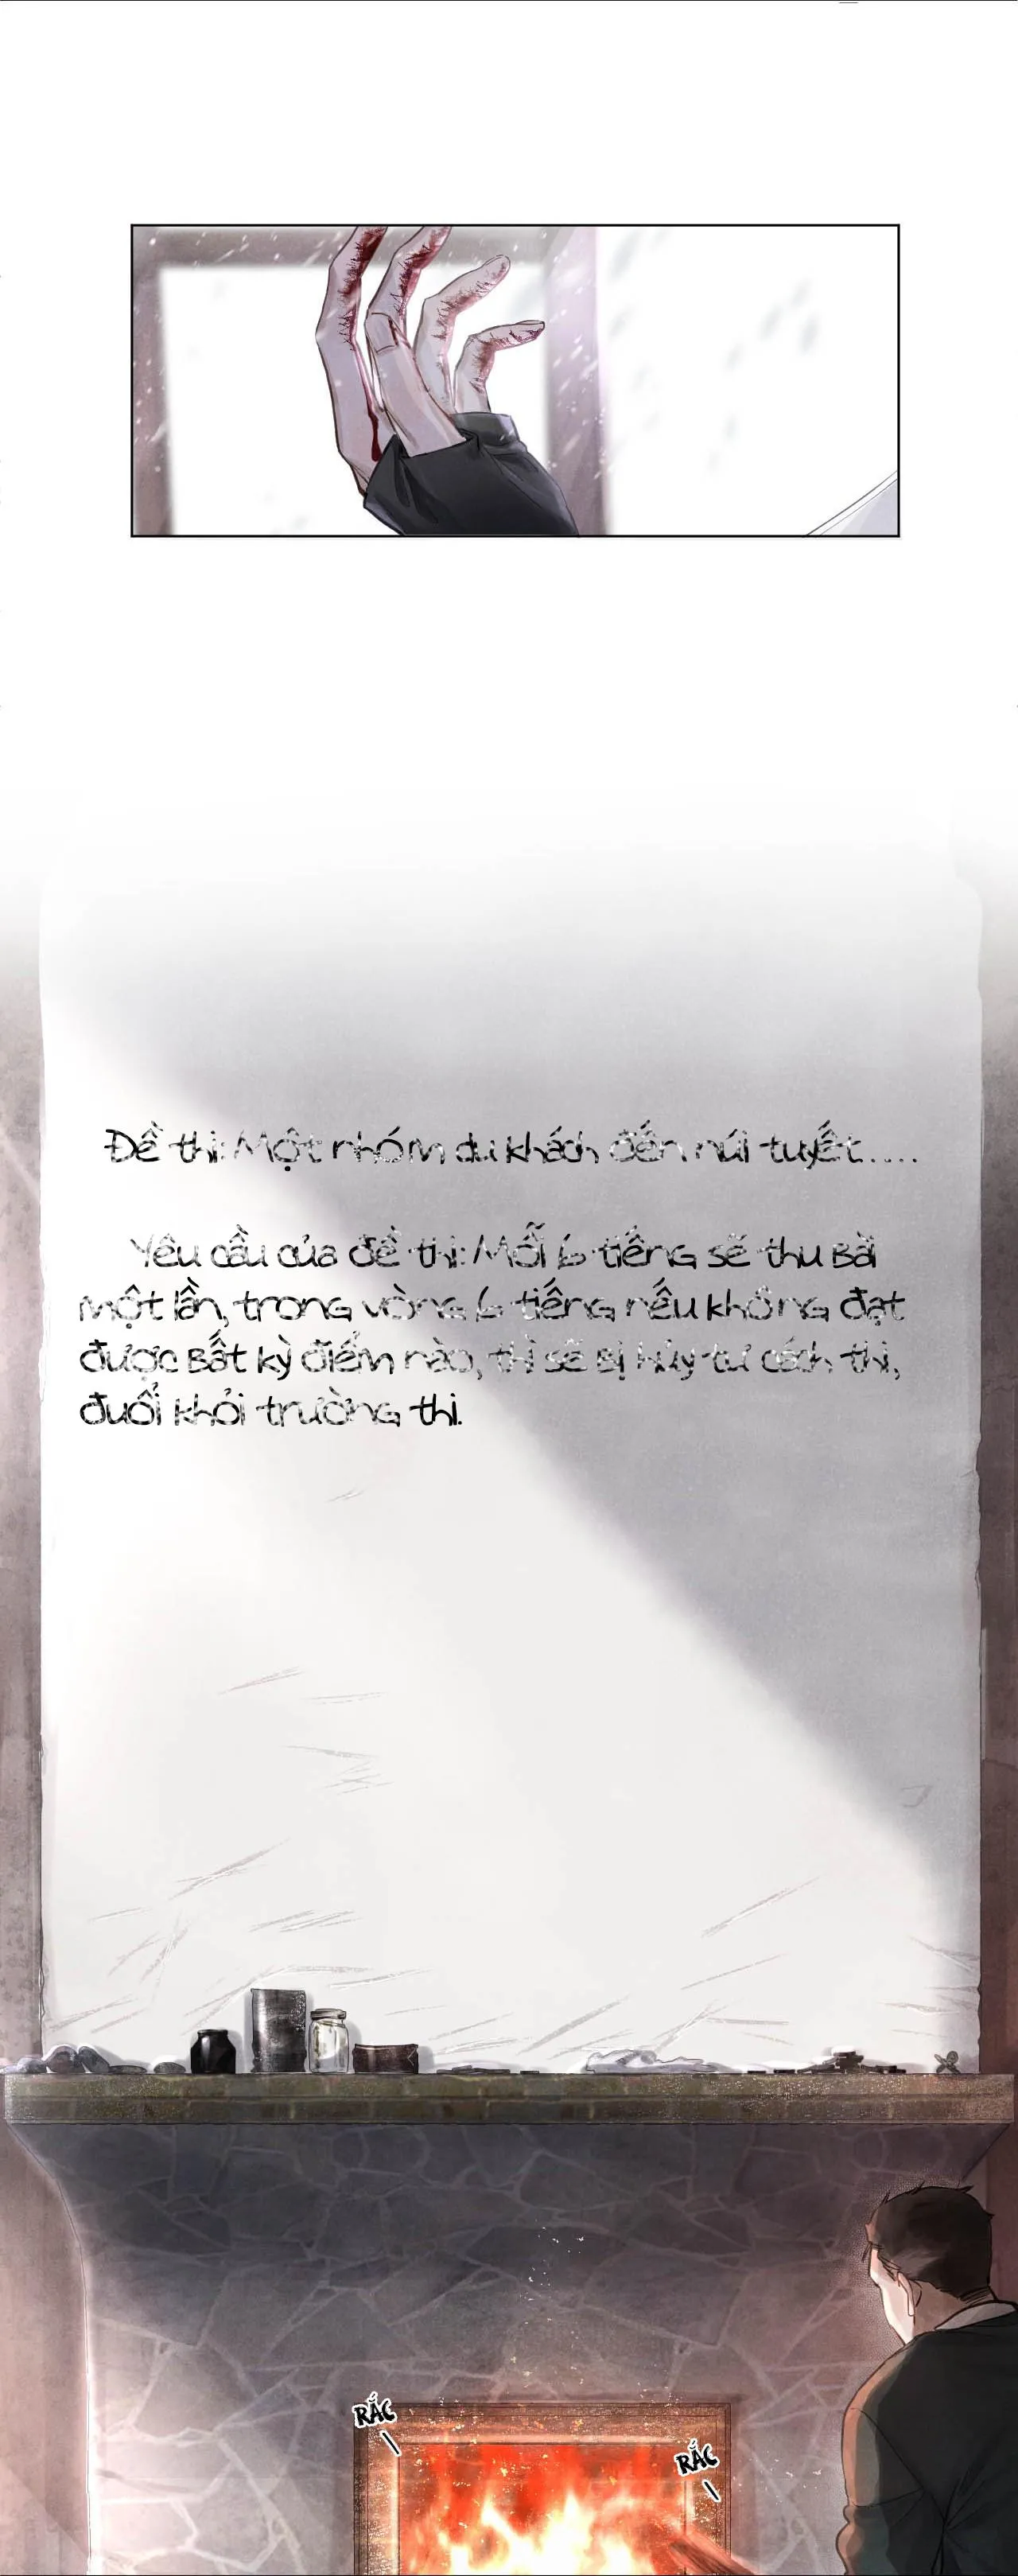 Đề thi: Một nhóm du khách đến núi tuyết.....
Yêu cầu của đề thi: Mỗi 6 tiếng sẽ thu bài
một lần, trong vòng 6 tiếng nếu không đạt
được bất kỳ điểm nào, thì sẽ bị hủy tư cách thi,
đuổi khỏi trường thi.
RẮC
RẮC